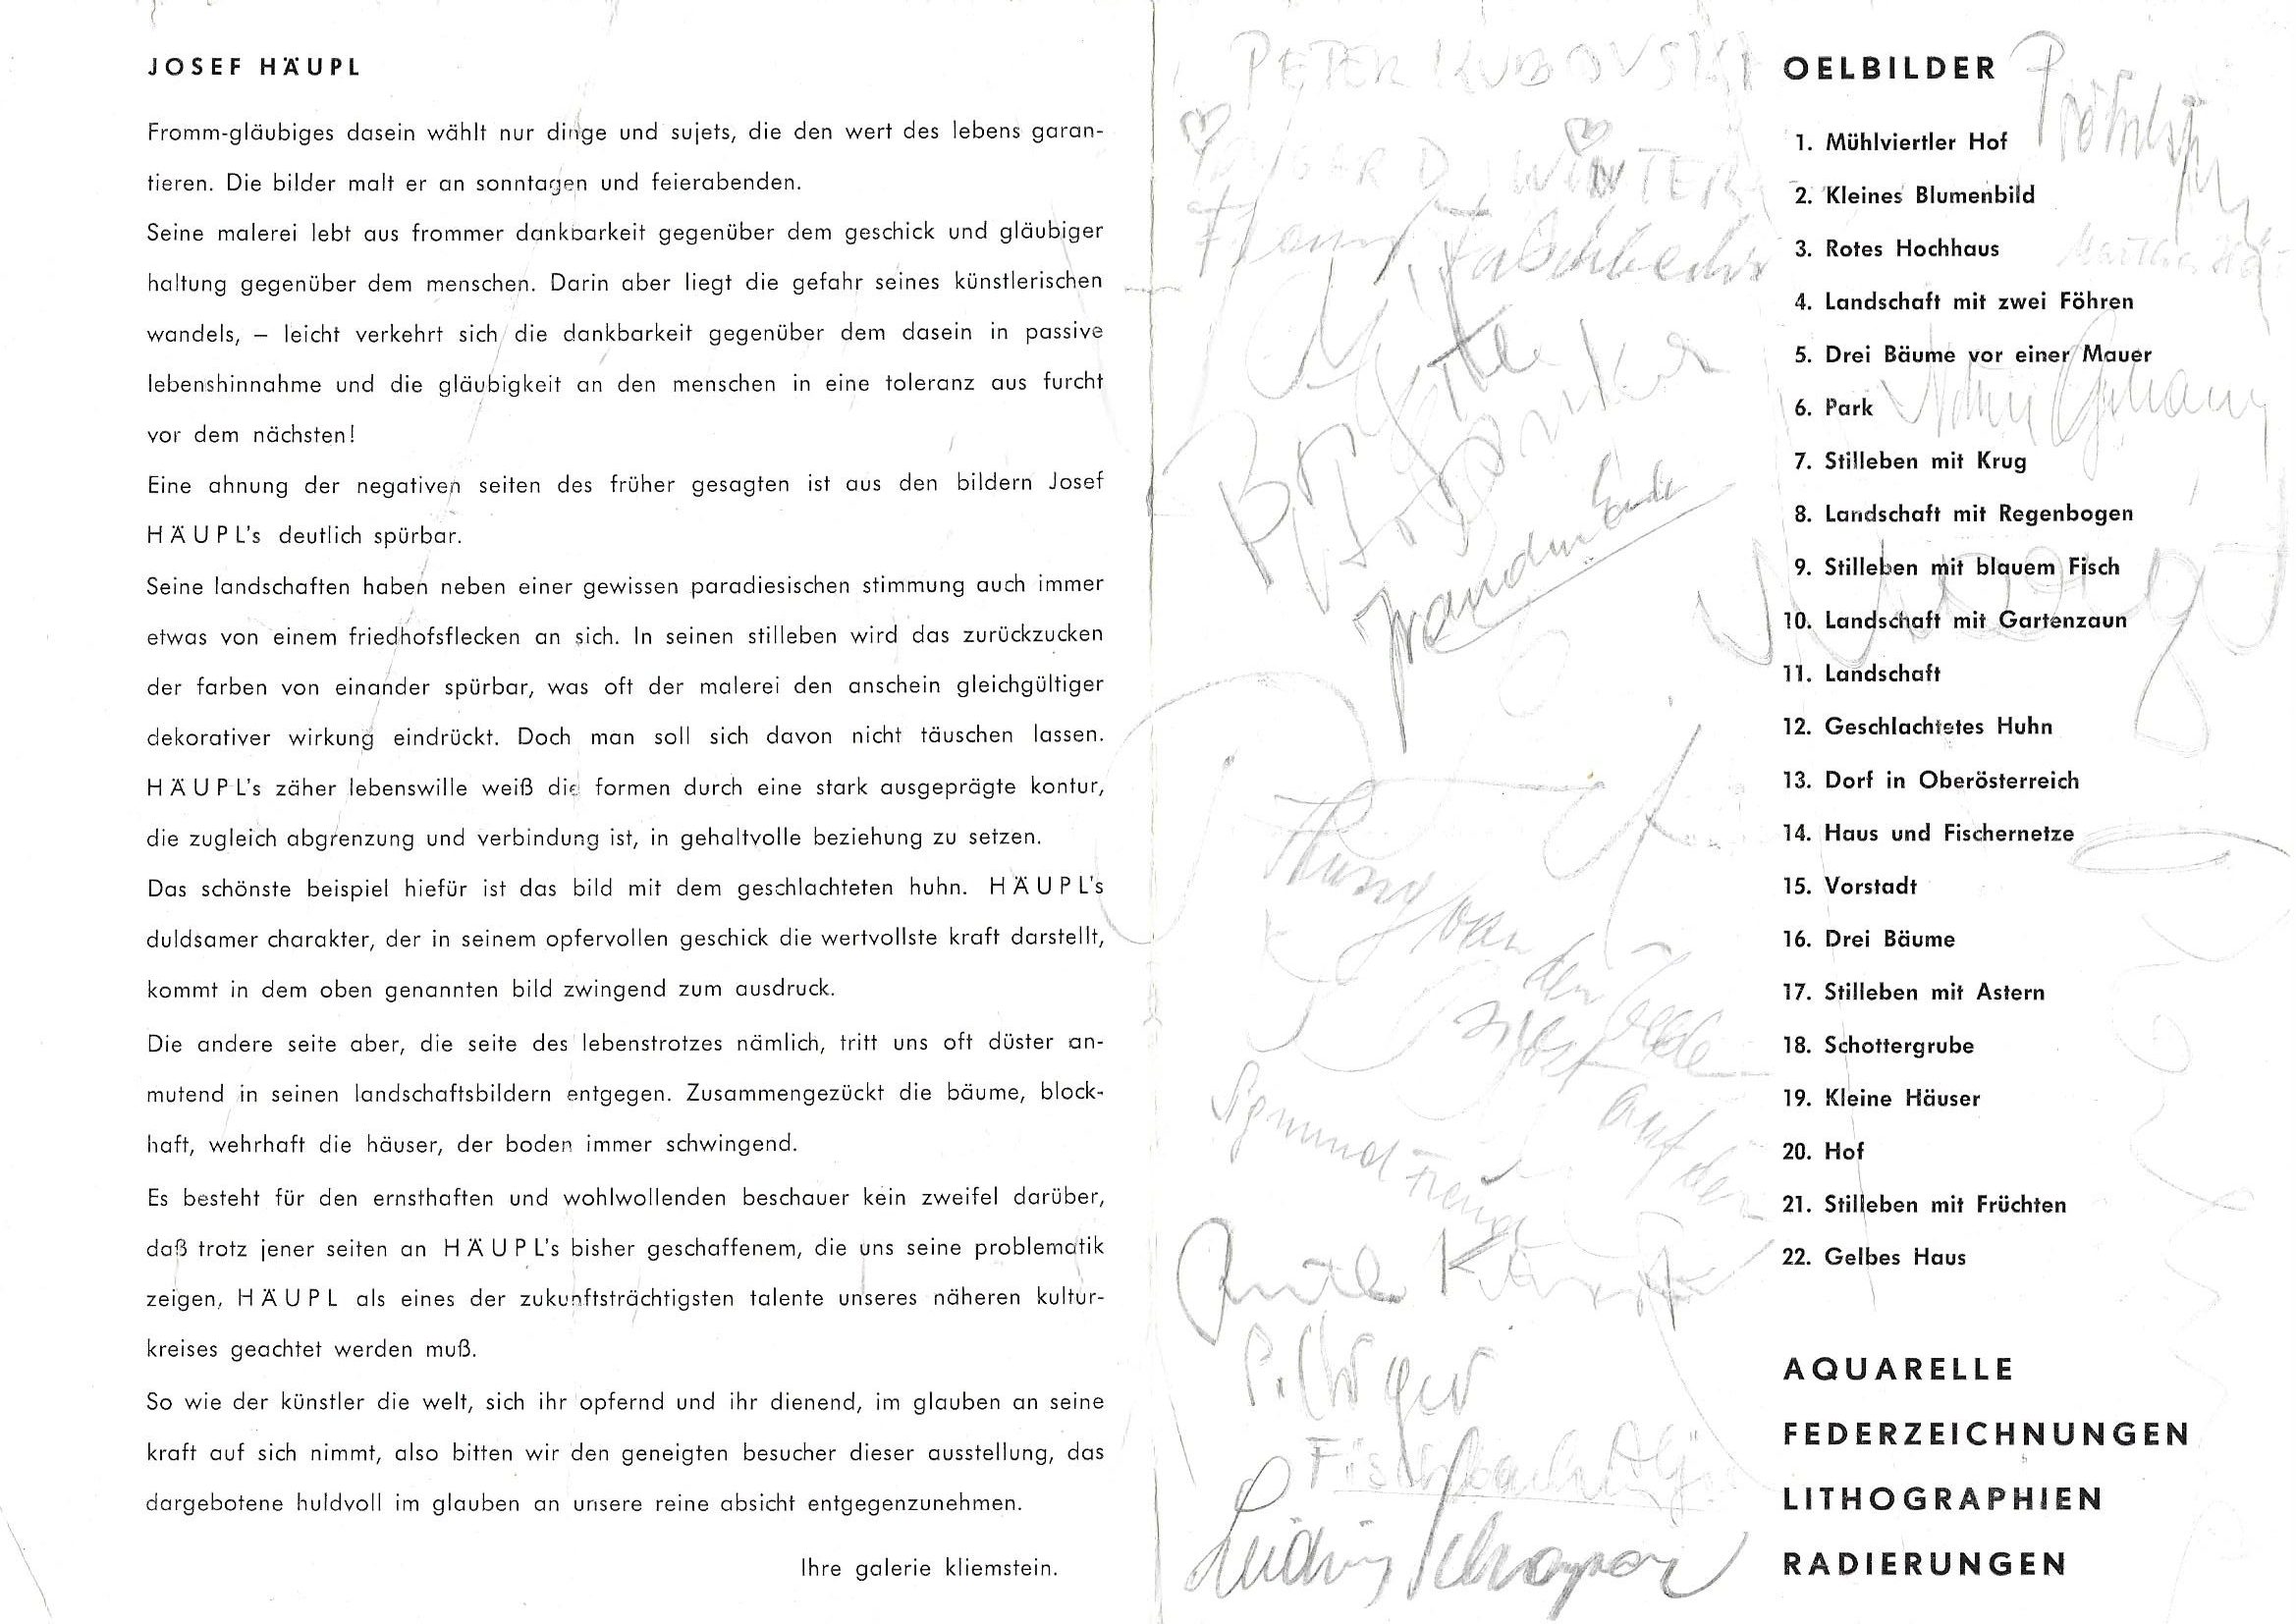 JOSEF HÄUPL
Fromm-gläubiges dasein wählt nur dinge und sujets, die den wert des lebens garan-
tieren. Die bilder malt er an sonntagen und feierabenden.
Seine malerei lebt aus frommer dankbarkeit gegenüber dem geschick und gläubiger
haltung gegenüber dem menschen. Darin aber liegt die gefahr seines künstlerischen
wandels, – leicht verkehrt sich die dankbarkeit gegenüber dem dasein in passive
lebenshinnahme und die gläubigkeit an den menschen in eine toleranz aus furcht
vor dem nächsten!
Eine ahnung der negativen seiten des früher gesagten ist aus den bildern Josef
HÄUPL's deutlich spürbar.
Seine landschaften haben neben einer gewissen paradiesischen stimmung auch immer
etwas von einem friedhofsflecken an sich. In seinen stilleben wird das zurückzucken
der farben von einander spürbar, was oft der malerei den anschein gleichgültiger
dekorativer wirkung eindrückt. Doch man soll sich davon nicht täuschen lassen.
HÄUPL's zäher lebenswille weiß die formen durch eine stark ausgeprägte kontur,
die zugleich abgrenzung und verbindung ist, in gehaltvolle beziehung zu setzen.
Das schönste beispiel hiefür ist das bild mit dem geschlachteten huhn. HÄUPL's
duldsamer charakter, der in seinem opfervollen geschick die wertvollste kraft darstellt,
kommt in dem oben genannten bild zwingend zum ausdruck.
Die andere seite aber, die seite des lebenstrotzes nämlich, tritt uns oft düster an-
mutend in seinen landschaftsbildern entgegen. Zusammengezückt die bäume, block-
haft, wehrhaft die häuser, der boden immer schwingend.
Es besteht für den ernsthaften und wohlwollenden beschauer kein zweifel darüber,
daß trotz jener seiten an HÄUPL's bisher geschaffenem, die uns seine problematik
zeigen, HÄUPL als eines der zukunftsträchtigsten talente unseres näheren kultur-
kreises geachtet werden muß.
So wie der künstler die welt, sich ihr opfernd und ihr dienend, im glauben an seine
kraft auf sich nimmt, also bitten wir den geneigten besucher dieser ausstellung, das
dargebotene huldvoll im glauben an unsere reine absicht entgegenzunehmen.
Ihre galerie kliemstein.
PETER KUBOVSKY
WINTER
Brigitte
van den
auf der
Sigmund Freud
Ruth
Ludwig
OELBILDER
1. Mühlviertler Hof
2. Kleines Blumenbild
3. Rotes Hochhaus
4. Landschaft mit zwei Föhren
5. Drei Bäume vor einer Mauer
6. Park
7. Stilleben mit Krug
8. Landschaft mit Regenbogen
9. Stilleben mit blauem Fisch
10. Landschaft mit Gartenzaun
11. Landschaft
12. Geschlachtetes Huhn
13. Dorf in Oberösterreich
14. Haus und Fischernetze
15. Vorstadt
16. Drei Bäume
17. Stilleben mit Astern
18. Schottergrube
19. Kleine Häuser
20. Hof
21. Stilleben mit Früchten
22. Gelbes Haus
AQUARELLE
FEDERZEICHNUNGEN
LITHOGRAPHIEN
RADIERUNGEN